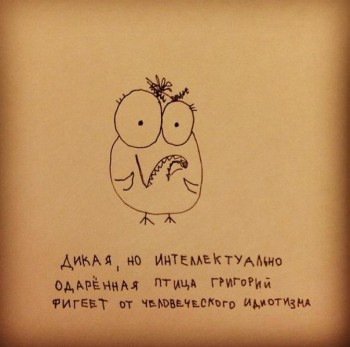 ДИКАЯ, НО ИНТЕЛЛЕКТУАЛЬНО
ОДАРЁННАЯ ПТИЦА ГРИГОРИЙ
ФИГЕЕТ ОТ ЧЕЛОВЕЧЕСКОГО ИДИОТИЗМА